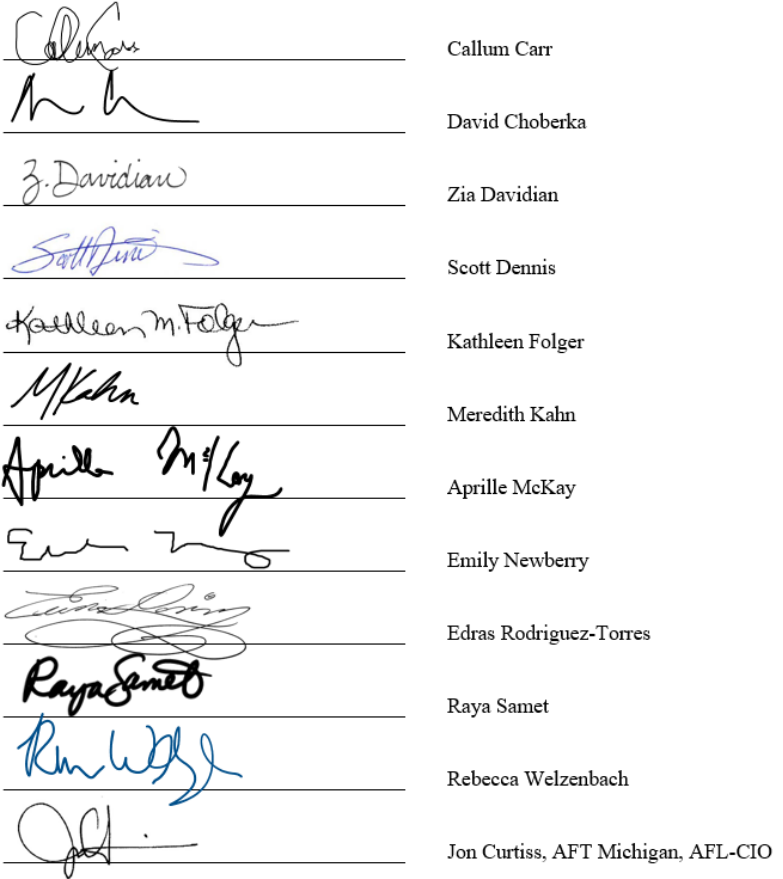 Callum Carr
David Choberka
Z. Davidian Zia Davidian
Scott Dennis
Kathleen M. Folger Kathleen Folger
MKahn Meredith Kahn
Aprille McKay Aprille McKay
Emily Newberry
Edras Rodriguez-Torres
Raya Samet Raya Samet
Rebecca Welzenbach
Jon Curtiss, AFT Michigan, AFL-CIO